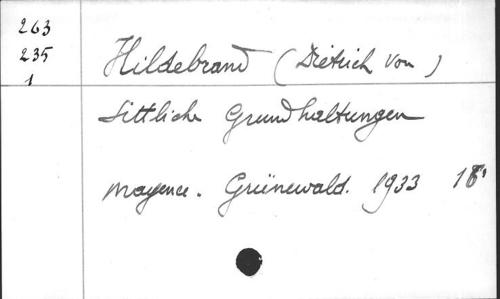 263
235
1
Hildebrand (Dietrich von)
Sittliche Grundhaltungen
Mayence. Grünewald. 1933 18°